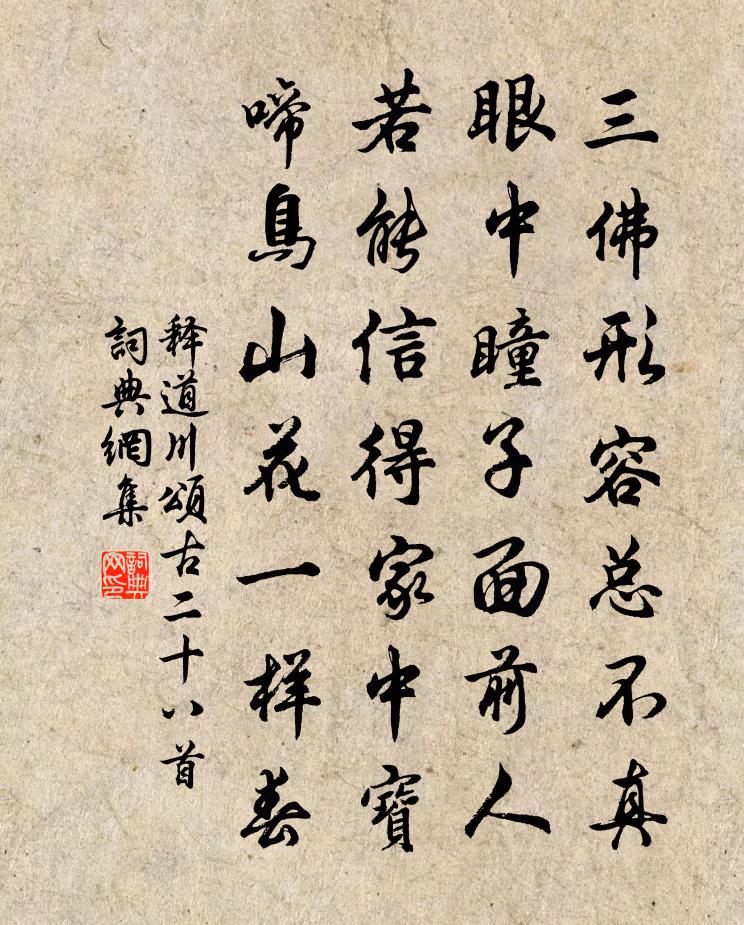 三佛形容总不真
眼中瞳子面前人
若能信得家中寶
啼鳥山花一样春
释道川頌古二十八首
詞典網集
詞典
网印